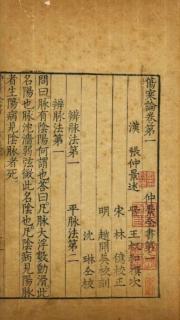 傷寒論卷第一
仲景全書第一
漢　張仲景述
晉　王叔和撰次
宋　林　億校正
明　趙開美校刻
沈　琳仝校
辨脉法第一　平脉法第二
辨脉法第一
問曰脉有陰陽何謂也答曰凡脉大浮數動滑此
名陽也脉沉濇弱弦微此名陰也凡陰病見陽脉
者生陽病見陰脉者死